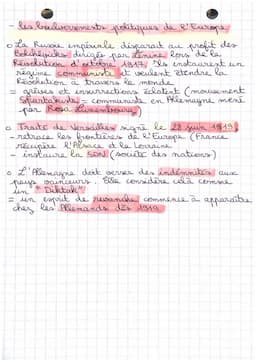 - les bouleversements politiques de l'Europe
o La Russie impériale disparaît au profit des
Bolcheviks dirigés par Lénine lors de la
Révolution d'octobre 1917. Ils instaurent un
régime communiste et veulent étendre la
Révolution à travers le monde
- grèves et insurrections éclatent (mouvement
Spartakiste = communiste en Allemagne mené
par Rosa Luxembourg)
o Traité de Versailles signé le 28 juin 1919:
- retrace les frontières de l'Europe (France
récupère l'Alsace et la Lorraine
- instaure la SDN (société des nations)
o L'Allemagne doit verser des indémnités aux
pays vainceurs. Elle considère cela comme
un "Diktat"
= un esprit de revanche commence à apparaître
chez les Allemands dès 1919.